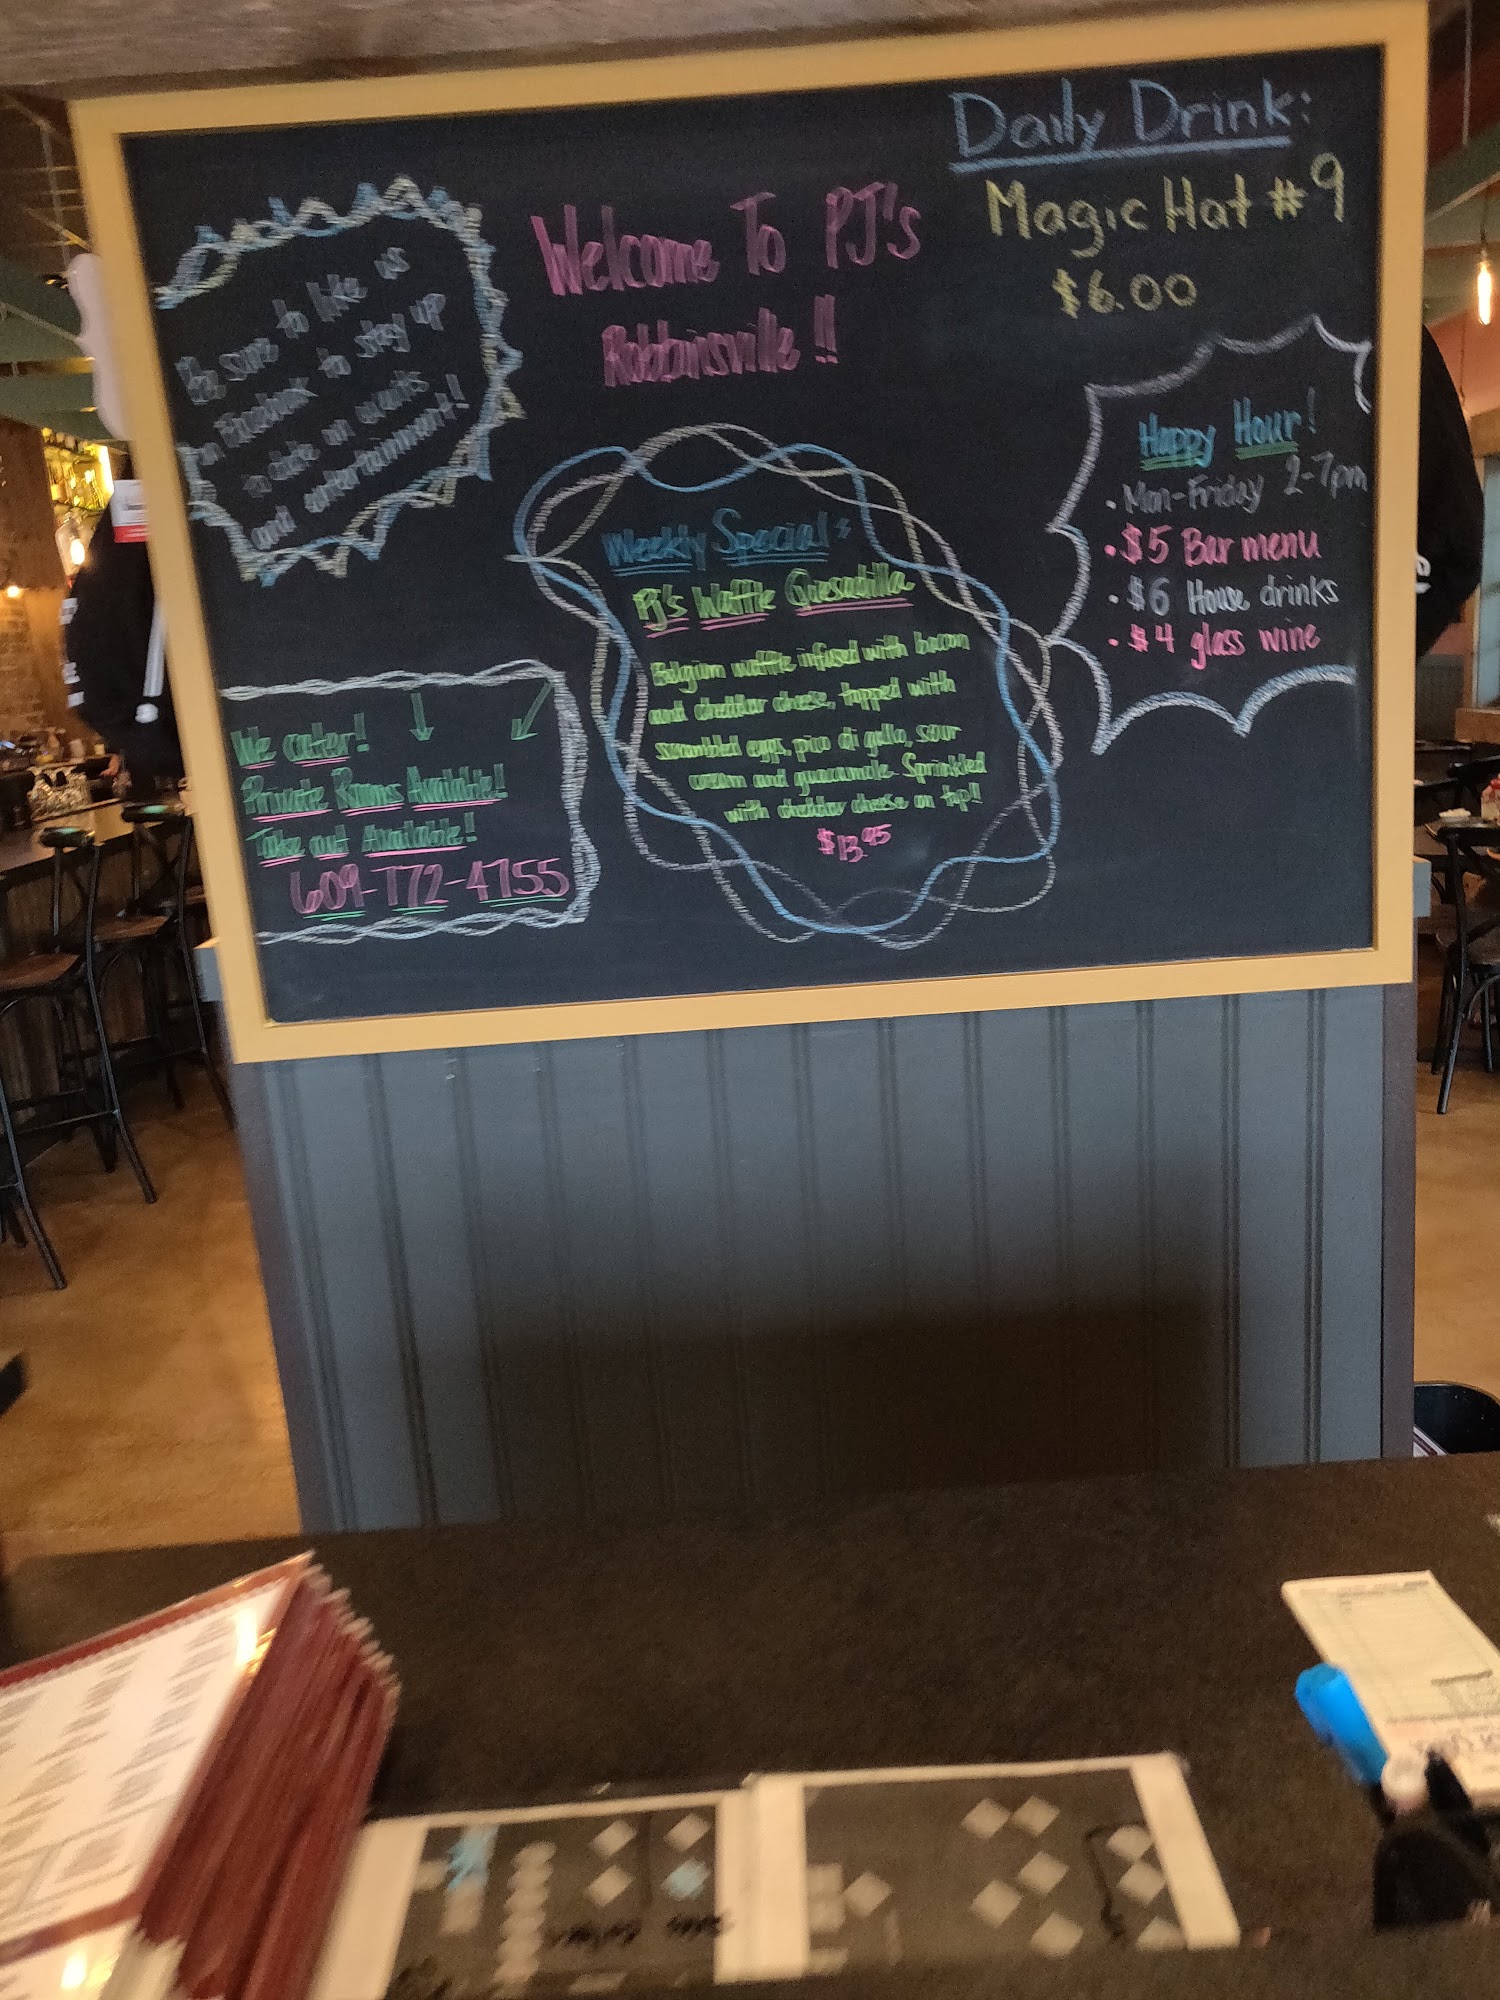 Daily Drink:
Magic Hat #9
$6.00
Welcome To PJ's
Robbinsville!!
Be sure to like us
on Facebook to stay up
to date on events
and entertainment!
Happy Hour!
• Mon-Friday 2-7pm
• $5 Bar menu
• $6 House drinks
• $4 glass wine
Weekly Special:
PJ's Waffle Quesadilla
Belgium waffle infused with bacon
and cheddar cheese, topped with
scrambled eggs, pico di gallo, sour
cream and guacamole. Sprinkled
with cheddar cheese on top!!
$13.95
We cater!
Private Rooms Available!
Take out Available!
609-772-4755